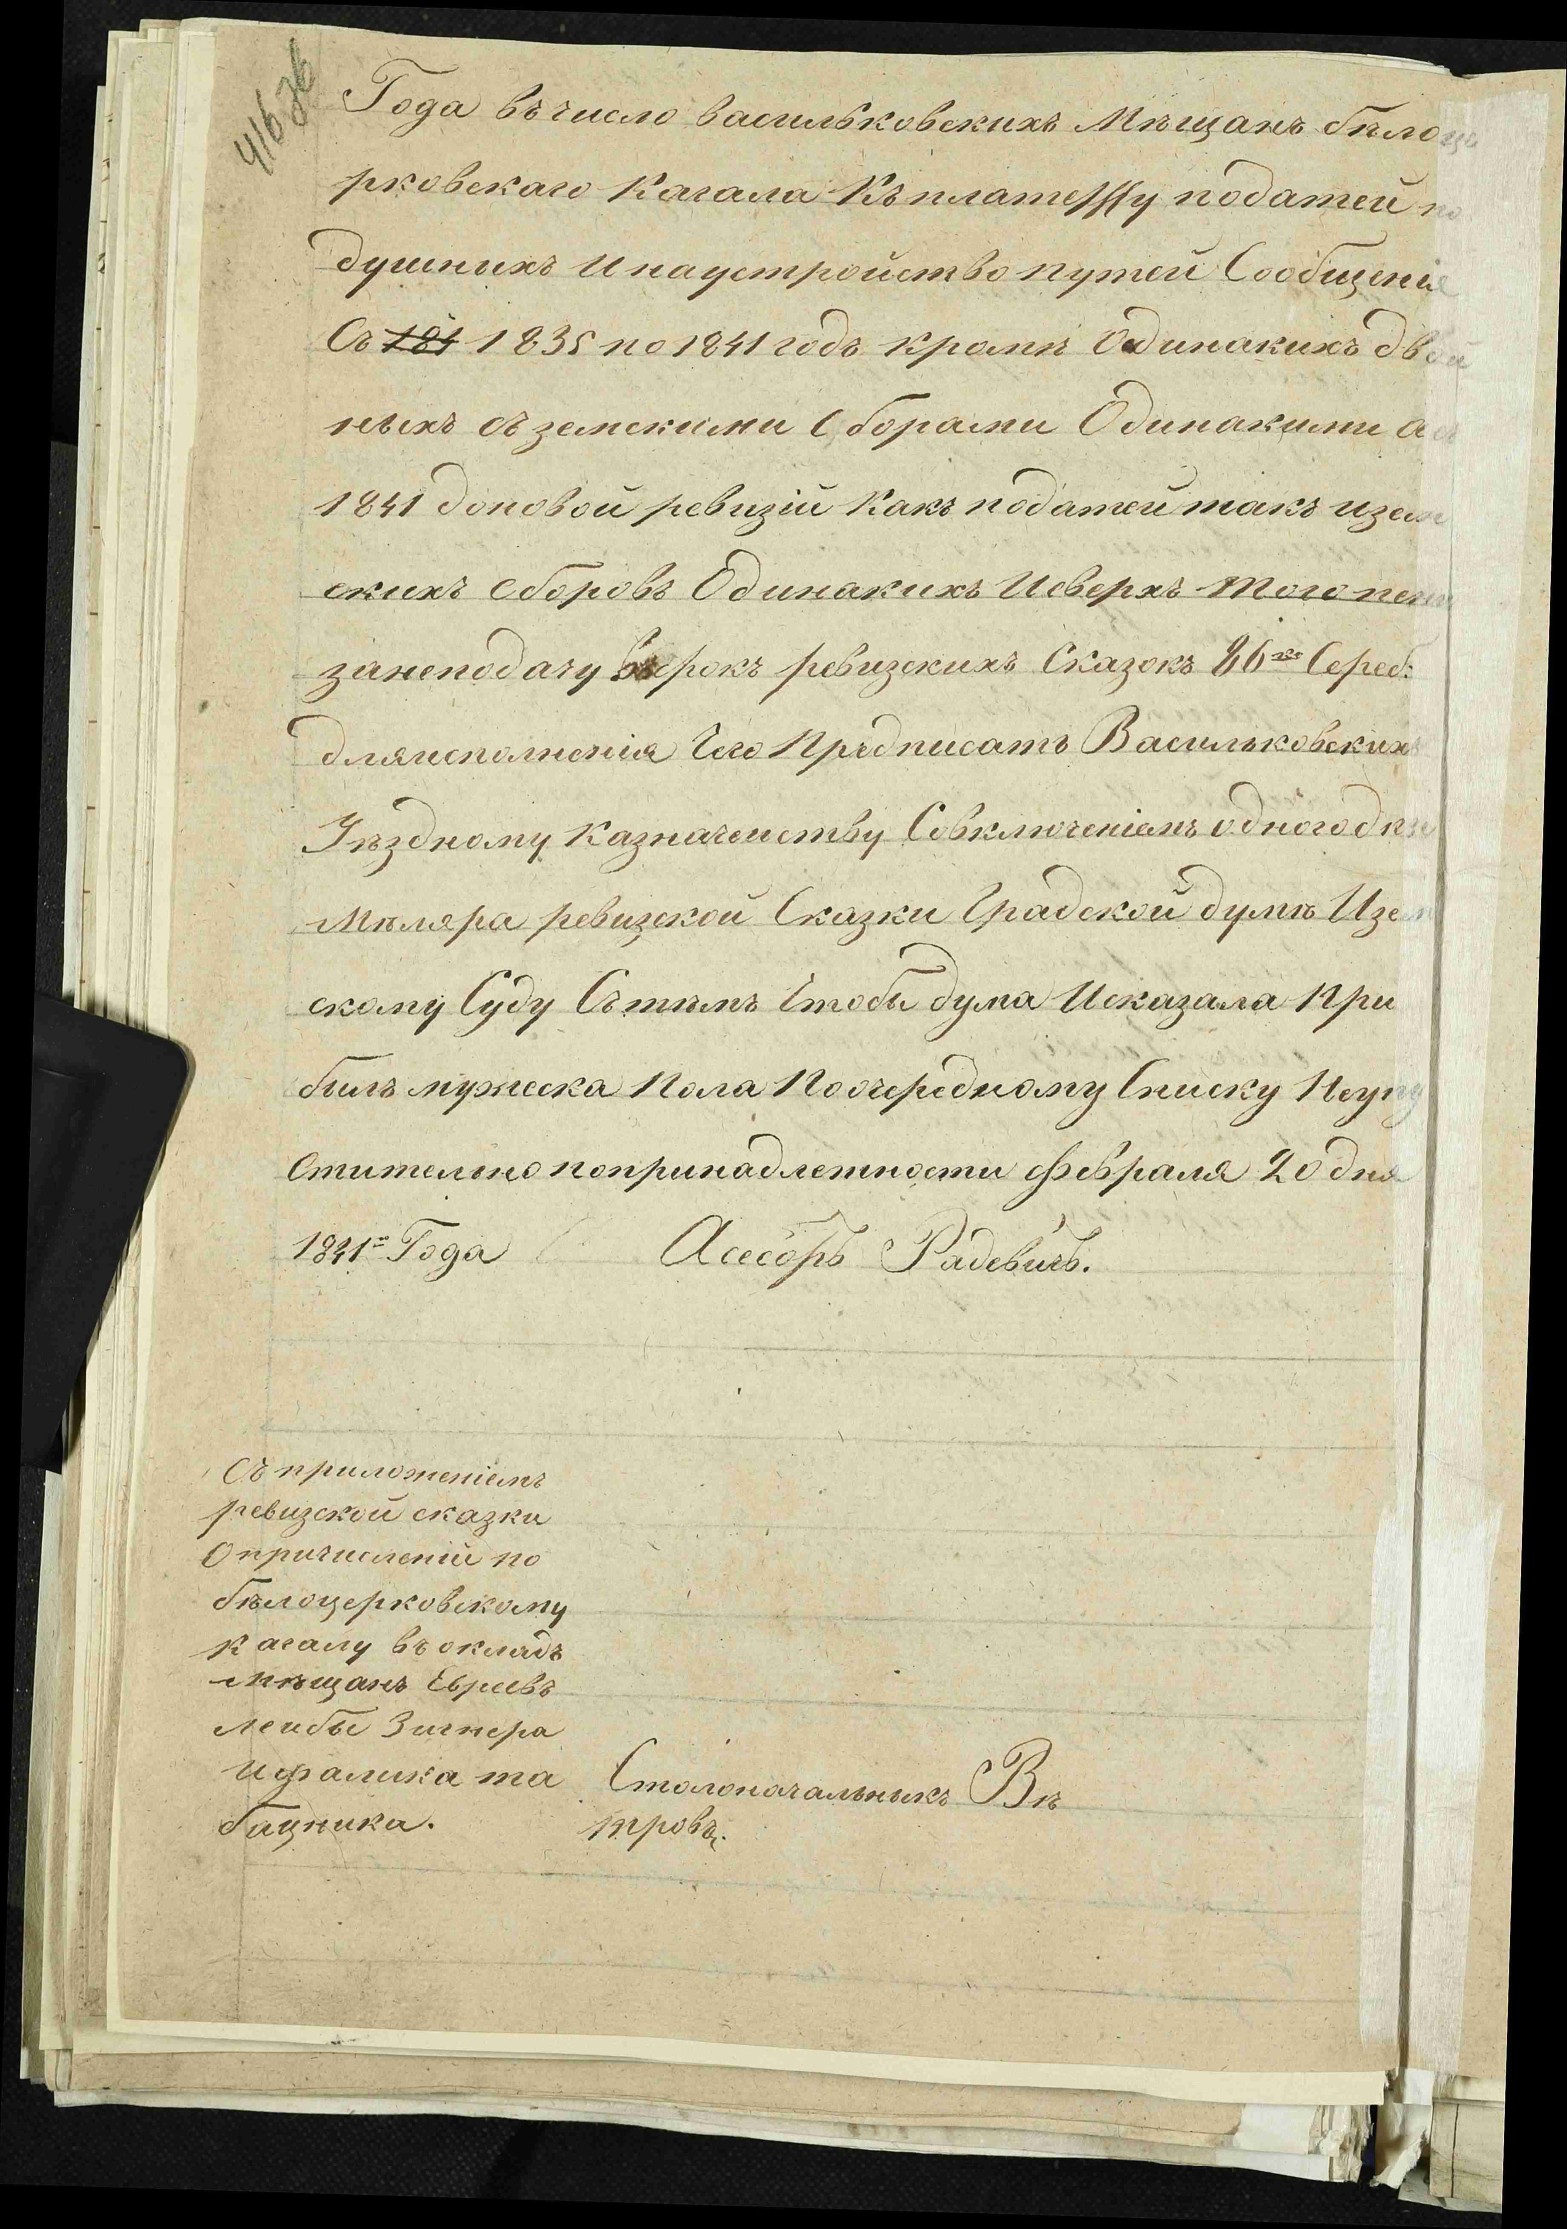 416 об
Года въ число васильковскихъ Мѣщанъ бѣлоце
рковскаго Кагала Къ платежу податей по
душнихъ и на устройство путей Сообщенія
Съ 184 1835 по 1841 годъ кромѣ Одинакихъ двой
ныхъ съ земскими Сборами Одинакими а съ
1841 до новой ревизій Какъ податей такъ и зем
скихъ сборовъ Одинакихъ И сверхъ того пени
за не подачу въ срокъ ревизскихъ Сказокъ 86 ко Сереб:
для исполненія Чего Прѣдписать Васильковскихъ
Уѣздному Казначейству Со включеніемъ одного эк
мѣляра ревизской Сказки Градской думѣ И зем
скому Суду Съ тѣмъ Чтобы дума Исказала При
быль мужеска Пола По очередному Списку Неупу
стительно по принадлежности февраля 20 дня
1841го Года Асесоръ Радевичъ.
Съ приложеніемъ
ревизской сказки
О причисленіи по
бѣлоцерковскому
кагалу въ окладъ
мѣщанъ Евреевъ
лейбы Зигнера
и фалика та
бацника.
Столоначальныкъ Вѣ
тровъ.